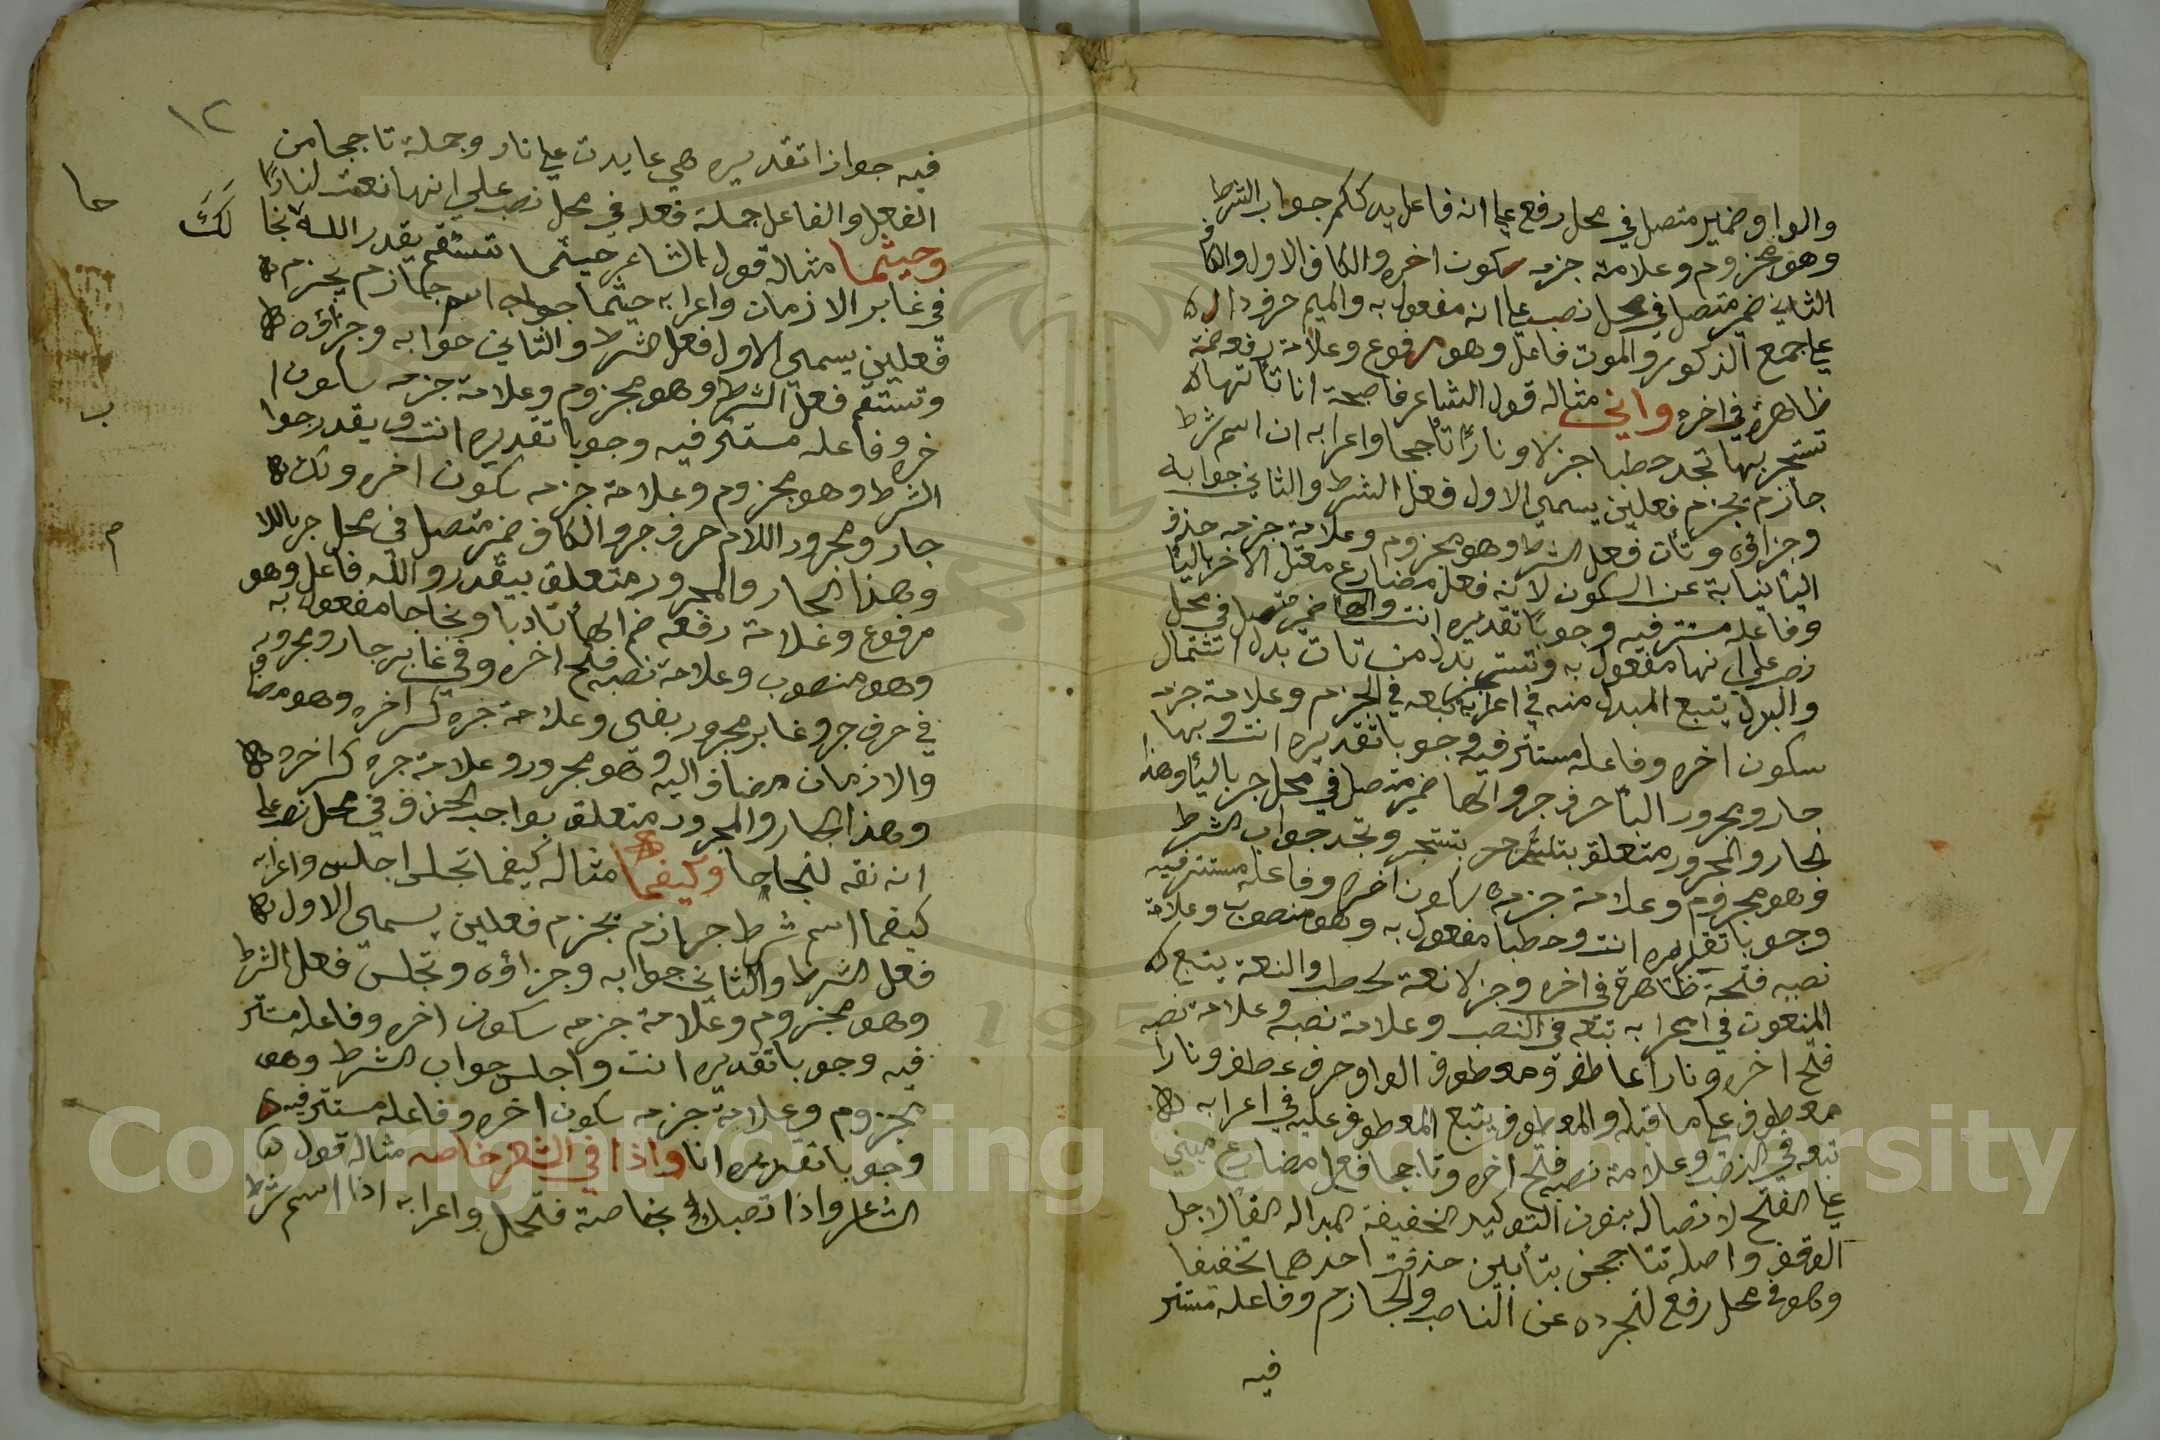 والواو ضمير متصل في محل رفع علي انه فاعل يدرككم جواب الشرط
وهو مجزوم وعلامة جزمه سكون اخره والكاف الاول والكاف
الثاني ضمير متصل في محل نصب علي انه مفعول به والميم حرف دال
علي جمع الذكور والموت فاعل وهو مرفوع وعلامة رفعه ضمة
ظاهرة في اخره واني مثاله قول الشاعر فاصبحت انا تأتها
تستجر بها تجد حطبا جزلا ونارًا تأججا واعرابه ان اسم شرط
جازم يجزم فعلين يسمي الاول فعل الشرط والثاني جوابه
وجزاؤه وتأت فعل الشرط وهو مجزوم وعلامة جزمه حذف
اليا نيابة عن السكون لانه فعل مضارع معتل الاخر باليا
وفاعله مستتر فيه وجوبًا تقديره انت والها ضمير متصل في محل
نصب علي انها مفعول به وتستجر بدل من تات بدل اشتمال
والبدل يتبع المبدل منه في اعرابه تبعه في الجزم وعلامة جزمه
سكون اخره وفاعله مستتر فيه وجوبا تقديره انت وبها
جار ومجرور البأ حرف جر والها ضمير متصل في محل جر باليأ وهذا
الجار والمجرور متعلق بتستجر وتجد جواب الشرط
وهو مجزوم وعلامة جزمه سكون اخره وفاعله مستتر فيه
وجوبا تقديره انت وحطبا مفعول به وهو منصوب وعلامة
نصبه فتحة ظاهرة في اخره وجزلا نعت لحطب والنعت يتبع
المنعوت في اعرابه تبعه في النصب وعلامة نصبه وعلامة نصبه
فتح اخره ونارا عاطف ومعطوف الواو حرف عطف ونارا
معطوف علي ما قبله والمعطوف يتبع المعطوف عليه في اعرابه
تبعه في النصب وعلامة نصبه فتح اخره وتاججا فعل مضارع مبني
علي الفتح لاتصاله بنون التوكيد الخفيفة المبداله الفًا لاجل
الوقف واصله تتاججن بتأيين حذفت احدهما تخفيفا
وهو في محل رفع لتجرده عن الناصب والجازم وفاعله مستتر
فيه
١٢
فيه جوازا تقديره هي عايدت علي نار وجملة تاججا من
الفعل والفاعل جملة فعله في محل نصب علي انها نعت لنارًا
وحيثما مثاله قول الشاعر حيثما تستقم يقدر لك الله نجا
حا
في غابر الازمان واعرابه حيثما اسم جازم يجزم
فعلين يسمي الاول فعل الشرط والثاني جوابه وجزاؤه
وتستقم فعل الشرط وهو مجزوم وعلامة جزمه سكون ا
خره وفاعله مستتر فيه وجوبا تقديره انت ويقدر جوا
ب
الشرط وهو مجزوم وعلامة جزمه سكون اخره ولك
جار ومجرور اللام حرف جر والكاف ضمير متصل في محل جر باللا
م
وهذا الجار والمجرور متعلق بيقدر والله فاعل وهو
مرفوع وعلامة رفعه ضم الهأ تادبا ونجاحا مفعول به
وهو منصوب وعلامة نصبه فتح اخره وفي غابر جار ومجرور
في حرف جر وغابر مجرور بفي وعلامة جره كسر اخره وهو مضاف
والازمان مضاف اليه وهو مجرور وعلامة جره كسر اخره
وهذا الجار والمجرور متعلق بواجب الحذف في محل نصب علي
انه نعت لنجاحا وكيفما مثاله كيفما تجلس اجلس واعرابه
كيفما اسم شرط جازم يجزم فعلين يسمي الاول
فعل الشرط والثاني جوابه وجزاؤه وتجلس فعل الشرط
وهو مجزوم وعلامة جزمه سكون اخره وفاعله مستتر
فيه وجوبا تقديره انت واجلس جواب الشرط وهو
مجزوم وعلامة جزمه سكون اخره وفاعله مستتر فيه
وجوبا تقديره انا واذا في الشعر خاصه مثاله قول
الشاعر واذا تصبك خصاصة فتحمل واعرابه اذا اسم شرط
1957
Copyright © King Saud University